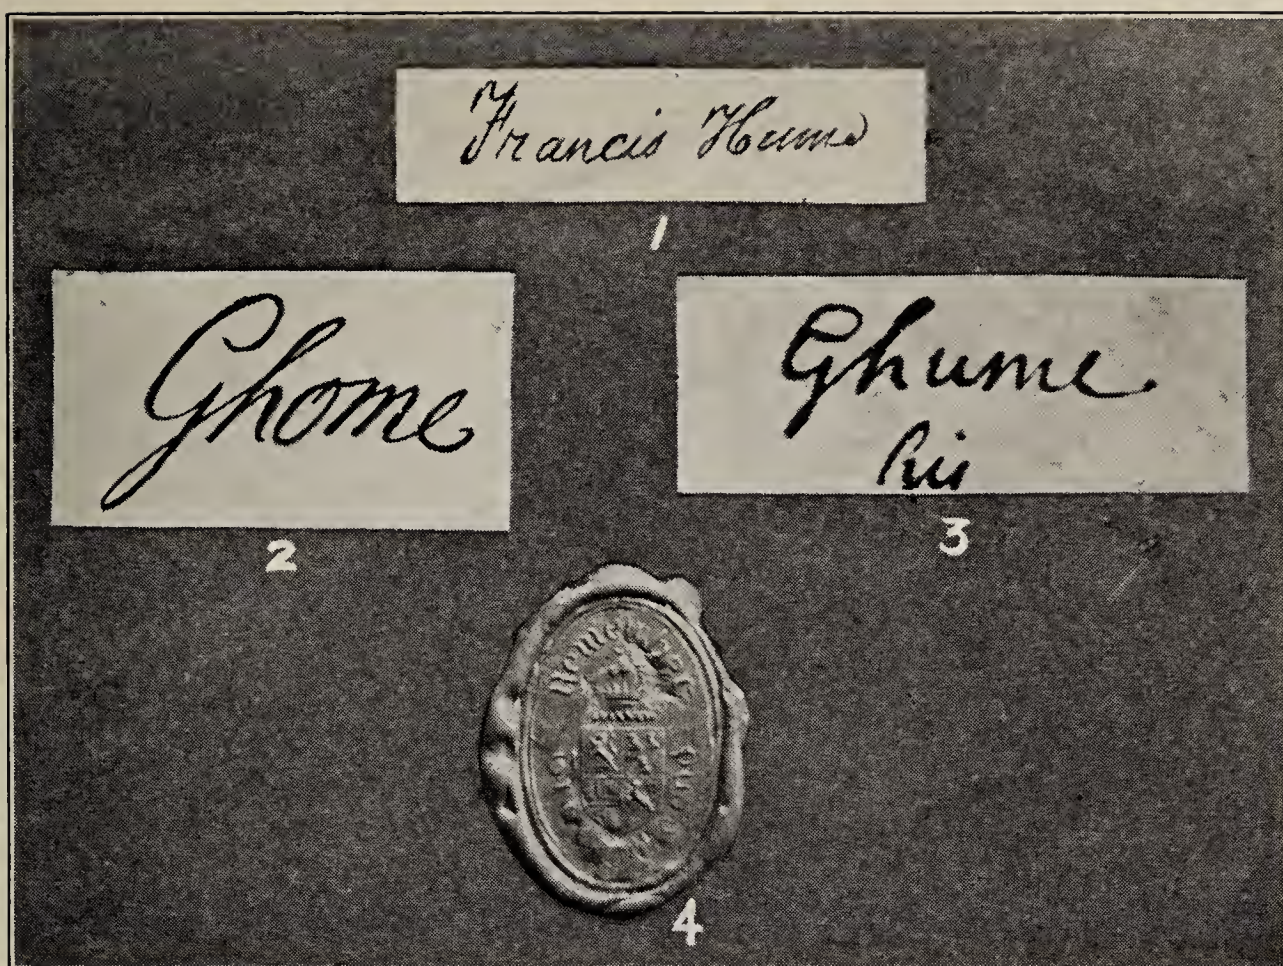 Francis Hume
1
Ghome
2
Ghume
his
3
4